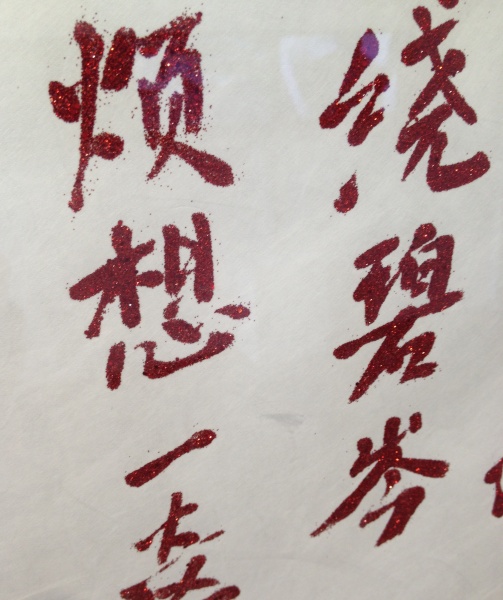 绕碧岑
烦想一